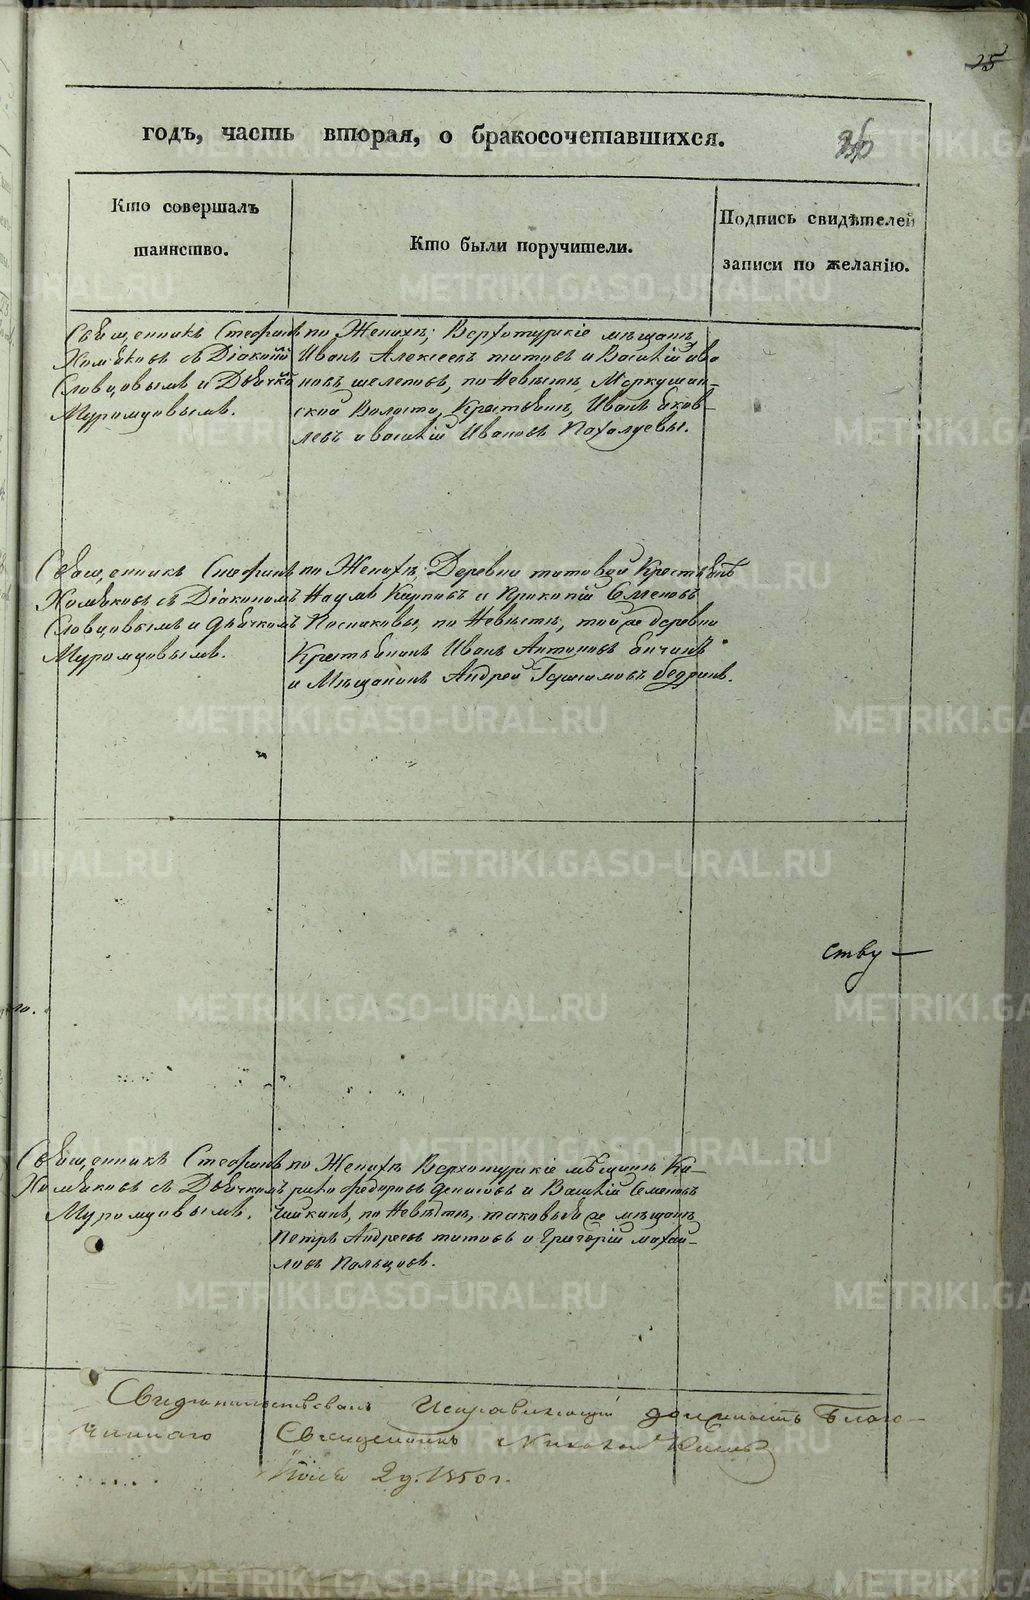 25
годъ, часть вторая, о бракосочетавшихся.
26
Кто совершалъ
таинство.
Кто были поручители.
Подпись свидѣтелей
записи по желанію.
Священникъ Стефанъ
Хомяковъ съ Діакономъ
Словцовымъ и Дьячко
Муромцовымъ.
по Женихѣ; Верхотурскіе мѣщанъ
Иванъ Алексеевъ титовъ и Василій ива
новъ шелеповъ, по Невѣстѣ, Меркушин-
ской Волости, Крестьянъ, Иванъ яков-
левъ и василій Ивановъ Пахалуевы.
Священникъ Стефанъ
Хомяковъ съ Діакономъ
Словцовымъ и дьячкомъ
Муромцовымъ.
по Женихѣ; Деревни титовой Крестьянѣ
Наумъ Карповъ и Прокопій Семеновъ
Постниковы, по Невѣстѣ, той же деревни
Крестьянинъ Иванъ Антоновъ
и Мѣщанинъ Андрей Герасимовъ бедринъ.
ству —
Священникъ Стефанъ
Хомяковъ съ Дьячкомъ
Муромцовымъ.
по Женихѣ Верхотурскіе мѣщанъ Ки-
рило Федоровъ денисовъ и Василій Семеновъ
по Невѣстѣ, таковые же мѣщанъ
Петръ Андреевъ титовъ и Григорій михай-
ловъ Пальцовъ.
Свидѣтельствовалъ Исправляющій должность Благо-
чиннаго Священникъ Николай
Іюля 2 д. 1850 г.
METRIKI.GASO-URAL.RU